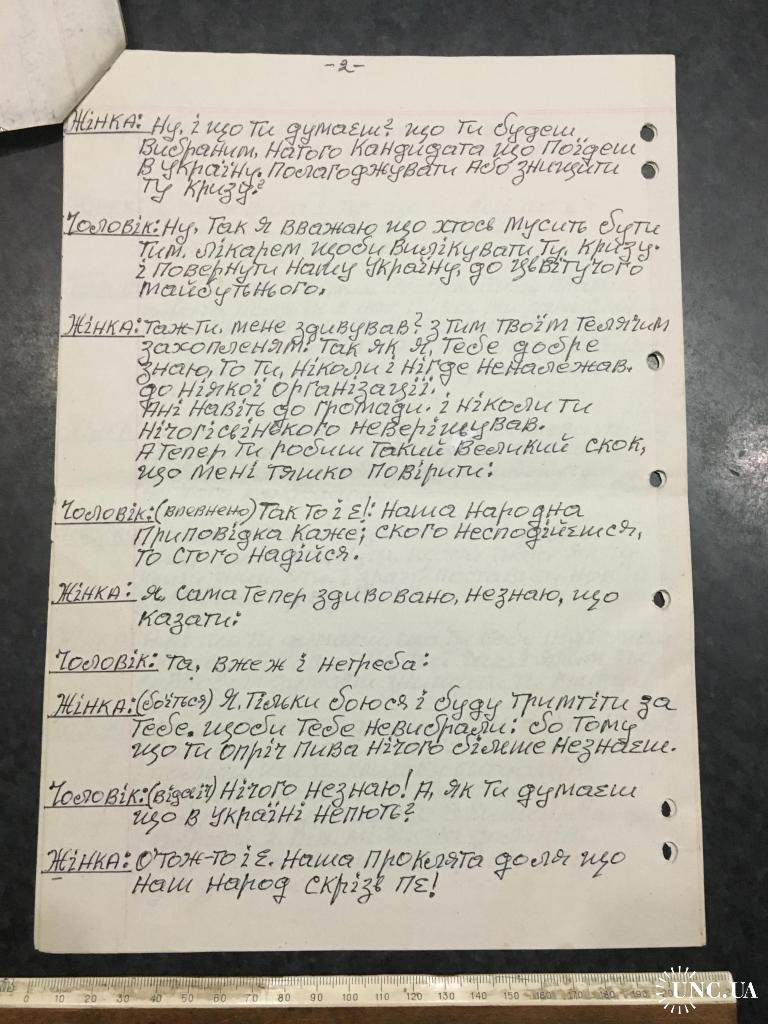 -2-
Жінка: Ну, і що ти думаєш? що ти будеш
вибраним, на того кандидата що поїдеш
в Україну. полагоджувати або знищити
ту кризу?
Чоловік: Ну, так я вважаю що хтось мусить бути
тим. лікарем щоби вилікувати ту. кризу.
і повернути нашу Україну, до цьвітучого
майбутнього.
Жінка: Таж-ти. мене здивував? з тим твоїм телячим
захопленям: так як я, тебе добре
знаю, то ти, ніколи і нігде неналежав.
до ніякої організації.
Ані навіть до громади. і ніколи ти
нічогісвінского невірішував.
А тепер ти робиш такий великий скок,
що мені тяшко повірити:
Чоловік: (впевнено) Так то і є!: Наша народна
приповідка каже; ского несподійешся,
то стого надійся.
Жінка: Я, сама тепер здивовано, незнаю, що
казати:
Чоловік: Та, вжеж і нетреба:
Жінка: (боїться) Я, тільки боюся і буду тримтіти за
тебе. щоби тебе невибрали: бо тому
що ти опріч пива нічого більше незнаєш.
Чоловік: Нічого незнаю! А, як ти думаєш
що в Україні непють?
Жінка: Отож-то і є. Наша проклята доля що
наш народ скрізв пє!
0 10 20 30 40 50 60 70 80 90 100 110 120 130 140 150 160 170 180 190
UNC.UA